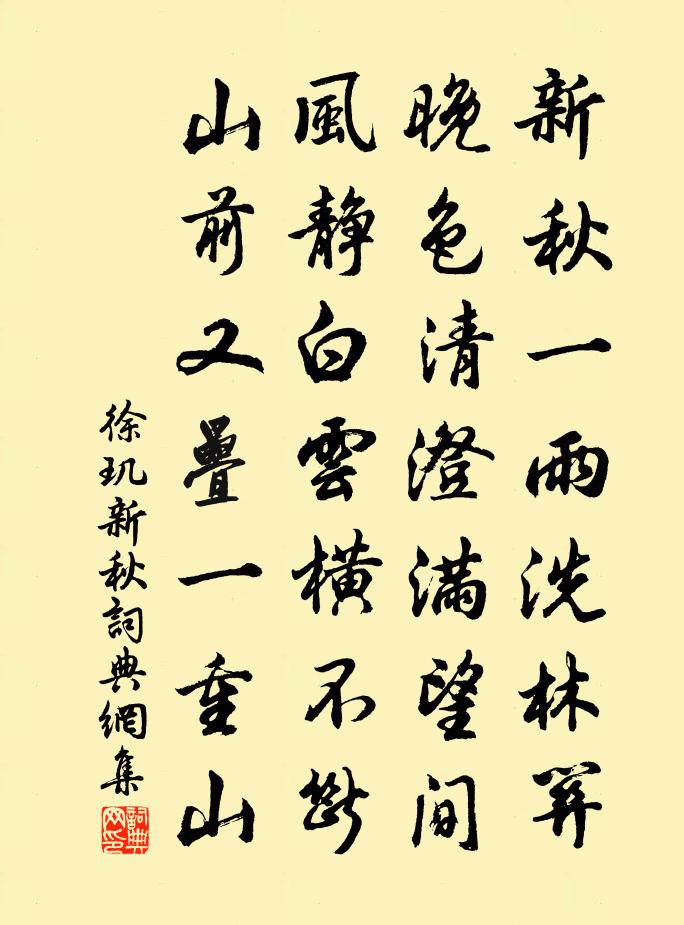 新秋一雨洗林關
晚色清澄滿望間
風靜白雲橫不斷
山前又疊一重山
徐玑新秋詞典網集
詞典网印